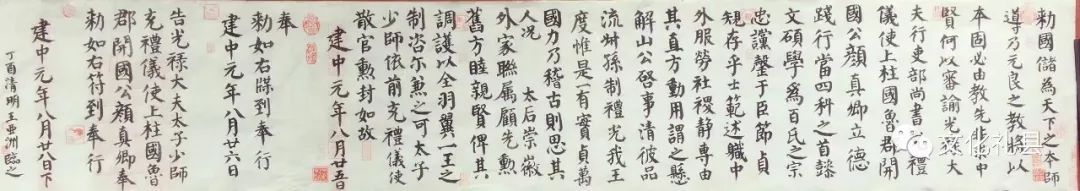 勅國儲為天下之本師
導乃元良之教將以
本固必由教先非求忠
賢何以審諭光祿大
夫行吏部尚書充禮
儀使上柱國魯郡開
國公顏真卿立德
踐行當四科之首懿
文碩學為百氏之宗
忠讜罄于臣節貞
規存乎士範述職中
外服勞社稷靜專由
其直方動用謂之懸
解山公啓事清彼品
流叔孫制禮光我王
度惟是一有實貞萬
國力乃稽古則思其
人況 太后崇徽
外家聯属顧先勲
舊方睦親賢俾其
調護以全羽翼一王之
制咨尔兼之可太子
少師依前充禮儀使
散官勲封如故
建中元年八月廿五日
奉
勅如右牒到奉行
建中元年八月廿六日
告光祿大夫太子少師
充禮儀使上柱國魯
郡開國公顏真卿奉
勅如右符到奉行
建中元年八月廿八日下
丁酉清明王亞洲臨之
文化礼县